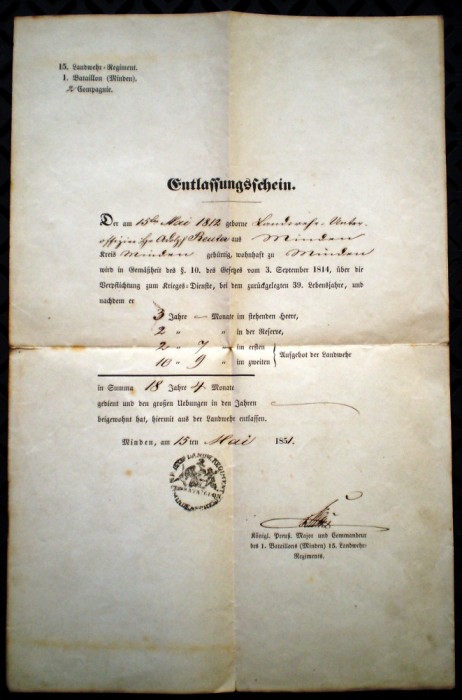 15. Landwehr-Regiment.
1. Bataillon (Minden).
2te Compagnie.
Entlassungsschein.
Der am 15ten Mai 1812 geborne Landwehr-Unter-
offizier Adolf Reuter aus Minden
Kreis Minden gebürtig, wohnhaft zu Minden
wird in Gemäßheit des §. 10. des Gesetzes vom 3. September 1814, über die
Verpflichtung zum Krieges-Dienste, bei dem zurückgelegten 39. Lebensjahre, und
nachdem er
3 Jahre — Monate im stehenden Heere,
2 " " in der Reserve,
2 " 7 " im ersten
10 " 9 " im zweiten } Aufgebot der Landwehr
in Summa 18 Jahre 4 Monate
gedient und den großen Uebungen in den Jahren —
beigewohnt hat, hiermit aus der Landwehr entlassen.
Minden, am 15ten Mai 1851.
Königl. Preuß. Major und Commandeur
des 1. Bataillons (Minden) 15. Landwehr-
Regiments.